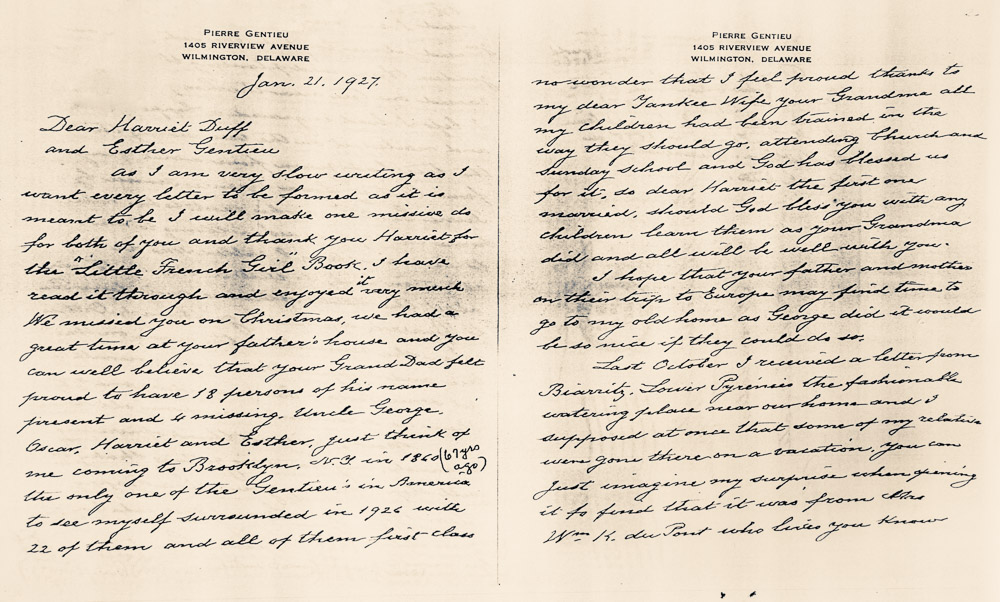 PIERRE GENTIEU
1405 RIVERVIEW AVENUE
WILMINGTON, DELAWARE
Jan. 21. 1927.
Dear Harriet Duff
and Esther Gentieu
As I am very slow writing as I
want every letter to be formed as it is
meant to be I will make one missive do
for both of you and thank you Harriet for
the "Little French Girl" Book. I have
read it through and enjoyed it very much
We missed you on Christmas, we had a
great time at your father's house and you
can well believe that your Grand Dad felt
proud to have 18 persons of his name
present and 4 missing. Uncle George.
Oscar, Harriet and Esther, just think of
me coming to Brooklyn. N.Y in 1860 (67 yrs ago)
the only one of the Gentieu's in America
to see myself surrounded in 1926 with
22 of them and all of them first class
PIERRE GENTIEU
1405 RIVERVIEW AVENUE
WILMINGTON, DELAWARE
no wonder that I feel proud thanks to
my dear Yankee Wife your Grandma all
my children had been trained in the
way they should go. attending Church and
Sunday school and God has blessed us
for it, so dear Harriet the first one
married, should God bless you with any
children learn them as your Grandma
did and all will be well with you.
I hope that your father and mother
on their trip to Europe may find time to
go to my old home as George did it would
be so nice if they could do so.
Last October I received a letter from
Biarritz, Lower Pyrenees the fashionable
watering place near our home and I
supposed at once that some of my relative
were gone there on a vacation, You can
just imagine my surprise when opening
it to find that it was from Mrs
Wm K. du Pont who lives you know